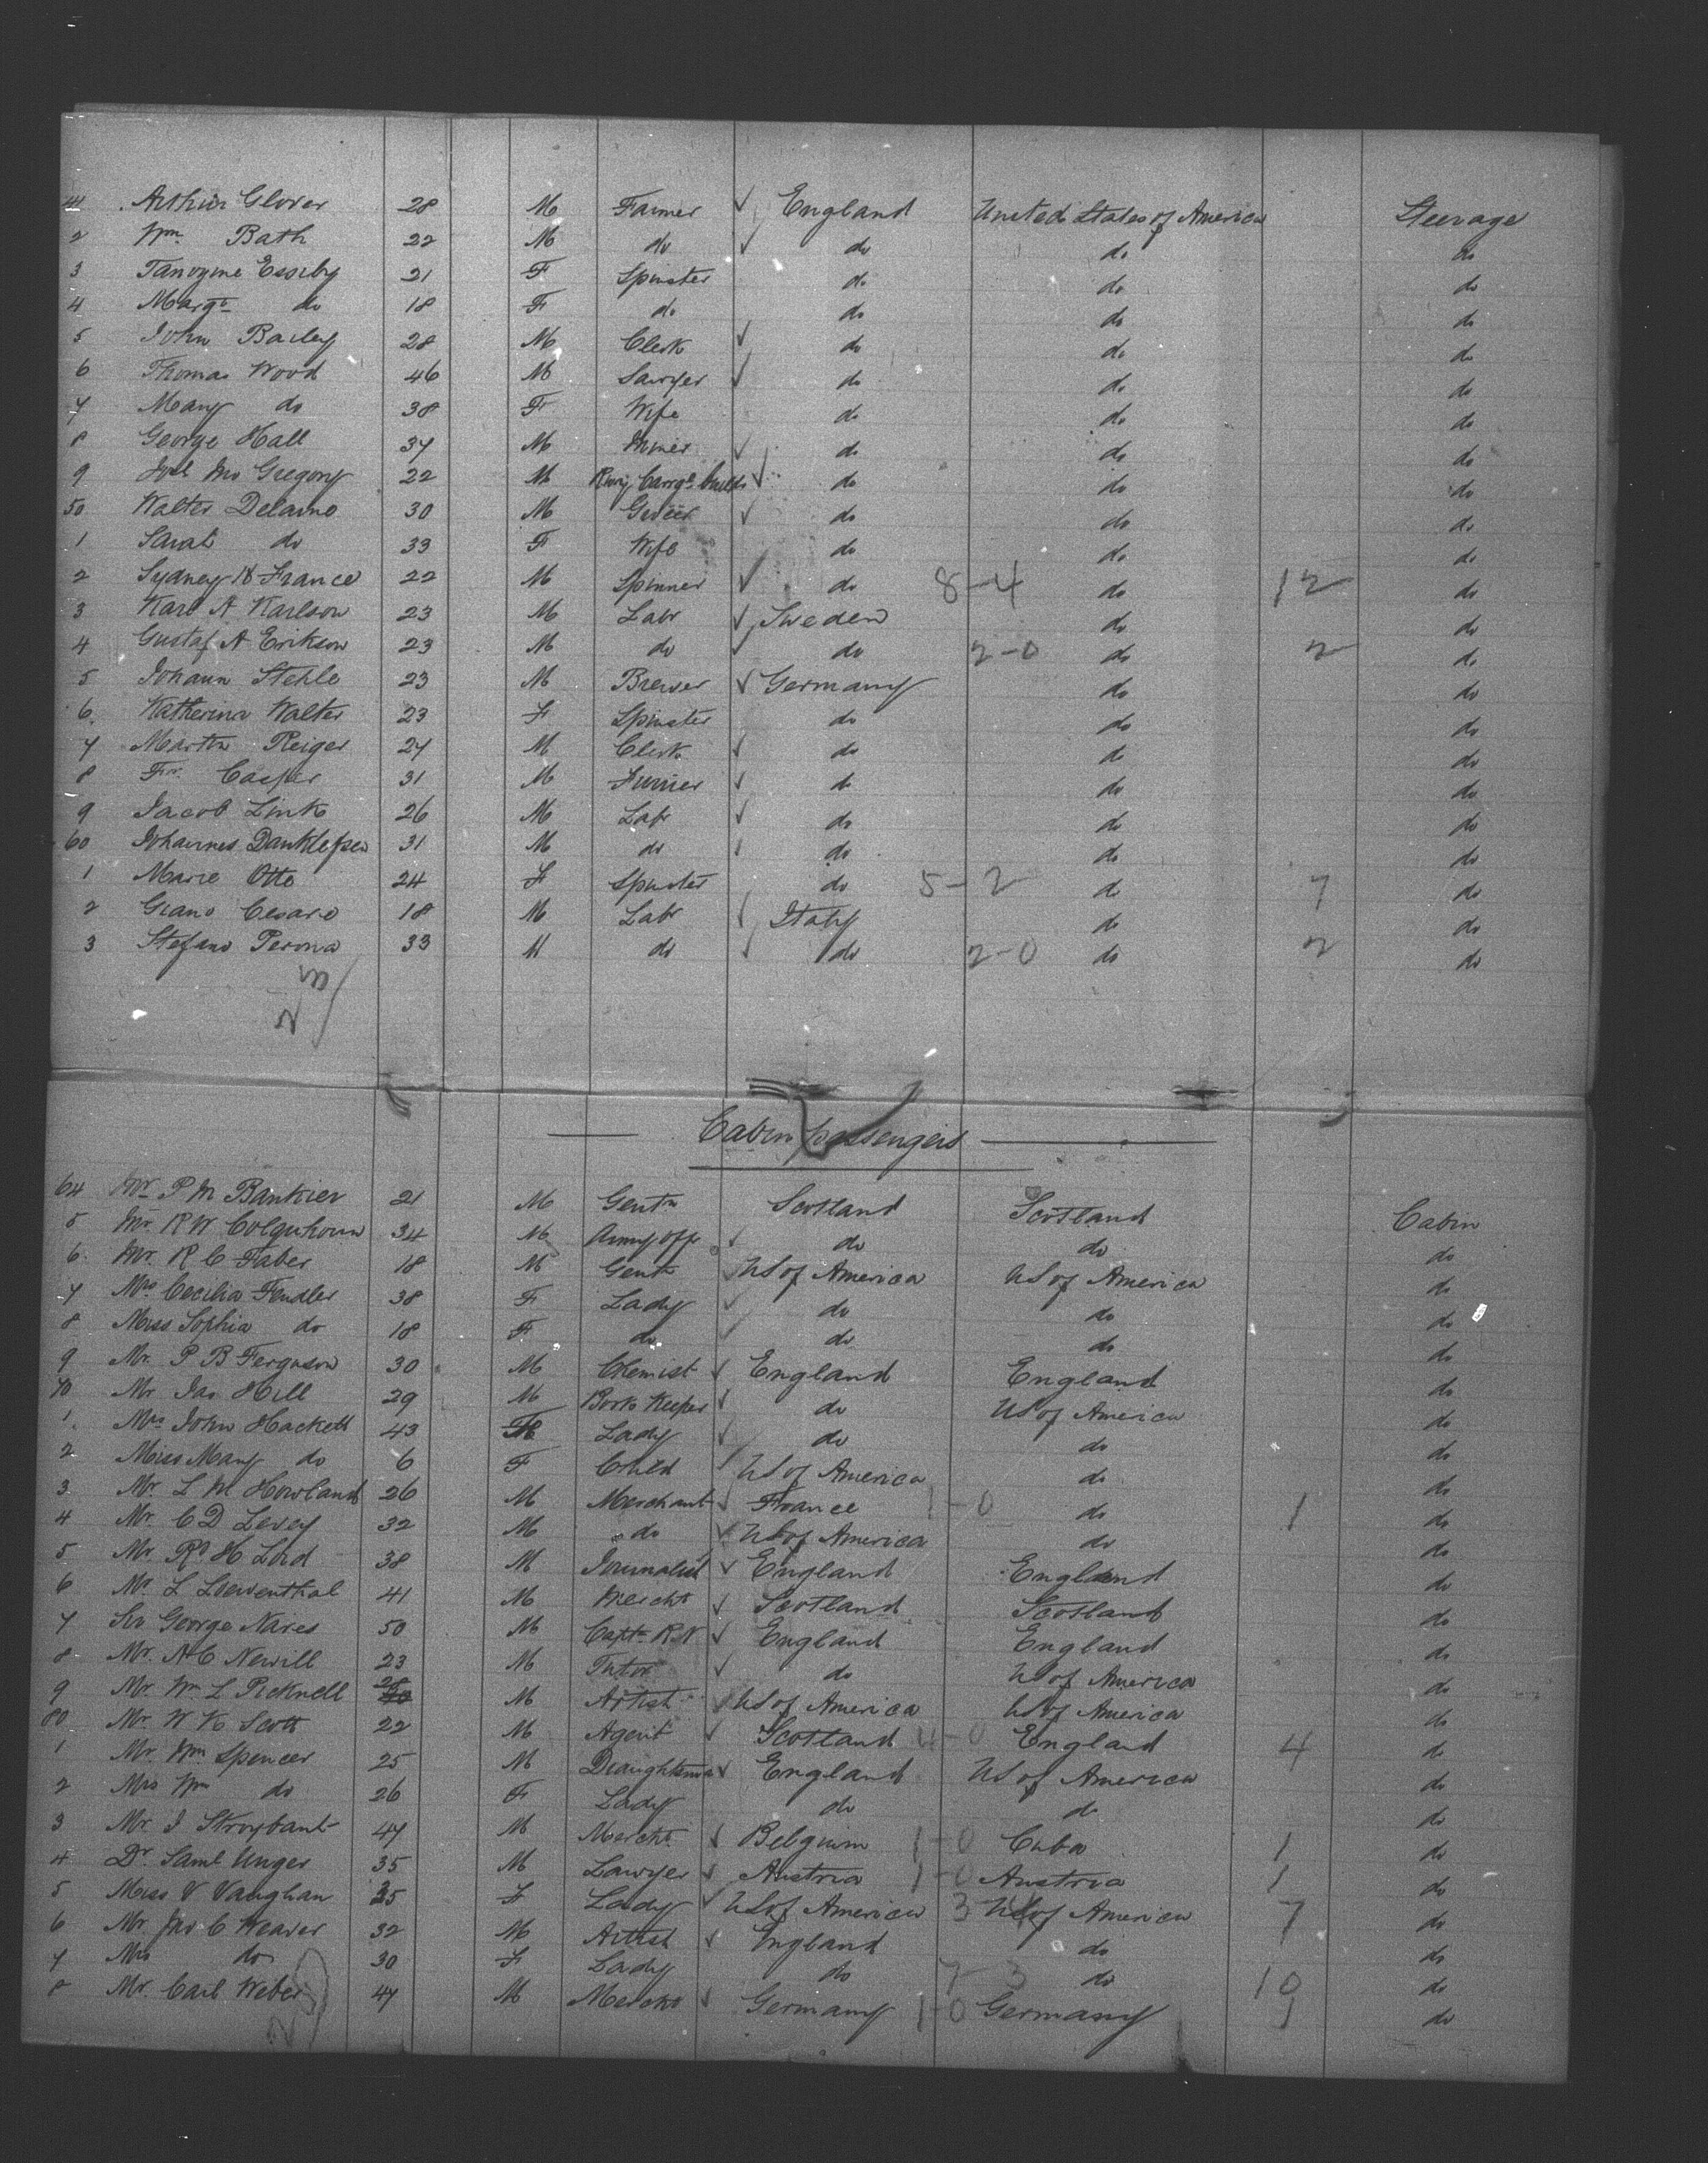 41 Arthur Glover 28 M Farmer ✓ England United States of America Steerage
2 Wm Bath 22 M do ✓ do do do
3 Essiby 21 F Spinster do do do
4 Margt do 18 F do do do do
5 John Bailey 28 M Clerk ✓ do do do
6 Thomas Wood 46 M Sawyer ✓ do do do
7 Mary do 38 F Wife do do do
8 George Hall 37 M Miner ✓ do do do
9 Gregory 22 M ✓ do do do
50 Walter 30 M ✓ do do do
1 Sarah do 33 F Wife do do do
2 Sydney H France 22 M Spinner ✓ do 8-4 do 12 do
3 Karl A Karlson 23 M Labr ✓ Sweden do do
4 Gustaf A Erikson 23 M do ✓ do 2-0 do 2 do
5 Johann Stehle 23 M Brewer ✓ Germany do do
6 Katherina Walter 23 F Spinster do do do
7 Martin Reiger 27 M Clerk ✓ do do do
8 Fr. Casper 31 M ✓ do do do
9 Jacob Link 26 M Labr ✓ do do do
60 Johannes 31 M do ✓ do do do
1 Marie Otto 24 F Spinster do 5-2 do 7 do
2 Cesare 18 M Labr ✓ Italy do do
3 Stefano Perona 33 M do ✓ do 2-0 do 2 do
23
Cabin passengers
64 Mr P M Bankier 21 M Gentn Scotland Scotland Cabin
5 Mr. R W Colquhoun 34 M Army offr ✓ do do do
6 Mr. R C Faber 18 M Gentn ✓ US of America US of America do
7 Mrs Cecilia Fendler 38 F Lady ✓ do do do
8 Miss Sophia do 18 F do ✓ do do do
9 Mr. P B Ferguson 30 M Chemist ✓ England England do
70 Mr Jas Hill 29 M Book Keeper ✓ do US of America do
1 Mrs John Hackett 43 F Lady ✓ do do do
2 Miss Mary do 6 F Child ✓ US of America do do
3 Mr. L M Howland 26 M Merchant ✓ France 1-0 do 1 do
4 Mr. C D Levey 32 M do ✓ US of America do do
5 Mr Rd H Lord 38 M Journalist ✓ England England do
6 Mr L Loewenthal 41 M Mercht ✓ Scotland Scotland do
7 Sir George Nares 50 M Captn R.N ✓ England England do
8 Mr. A C Newill 23 M Tutor ✓ do US of America do
9 Mr. Wm L Picknell 28 M Artist ✓ US of America US of America do
80 Mr. W K Scott 22 M Agent ✓ Scotland 4-0 England 4 do
1 Mr. Wm Spencer 25 M Draughtsman ✓ England US of America do
2 Mrs Wm do 26 F Lady do do do
3 Mr. J Stroybant 47 M Mercht ✓ Belgium 1-0 Cuba 1 do
4 Dr. Saml Unger 35 M Lawyer ✓ Austria 1-0 Austria 1 do
5 Miss V Vaughan 25 F Lady ✓ US of America 3-4 US of America 7 do
6 Mr Jno C Weaver 32 M Artist ✓ England do do
7 Mrs do 30 F Lady do 7-3 do 10 do
8 Mr. Carl Weber 47 M Mercht ✓ Germany 1-0 Germany 1 do